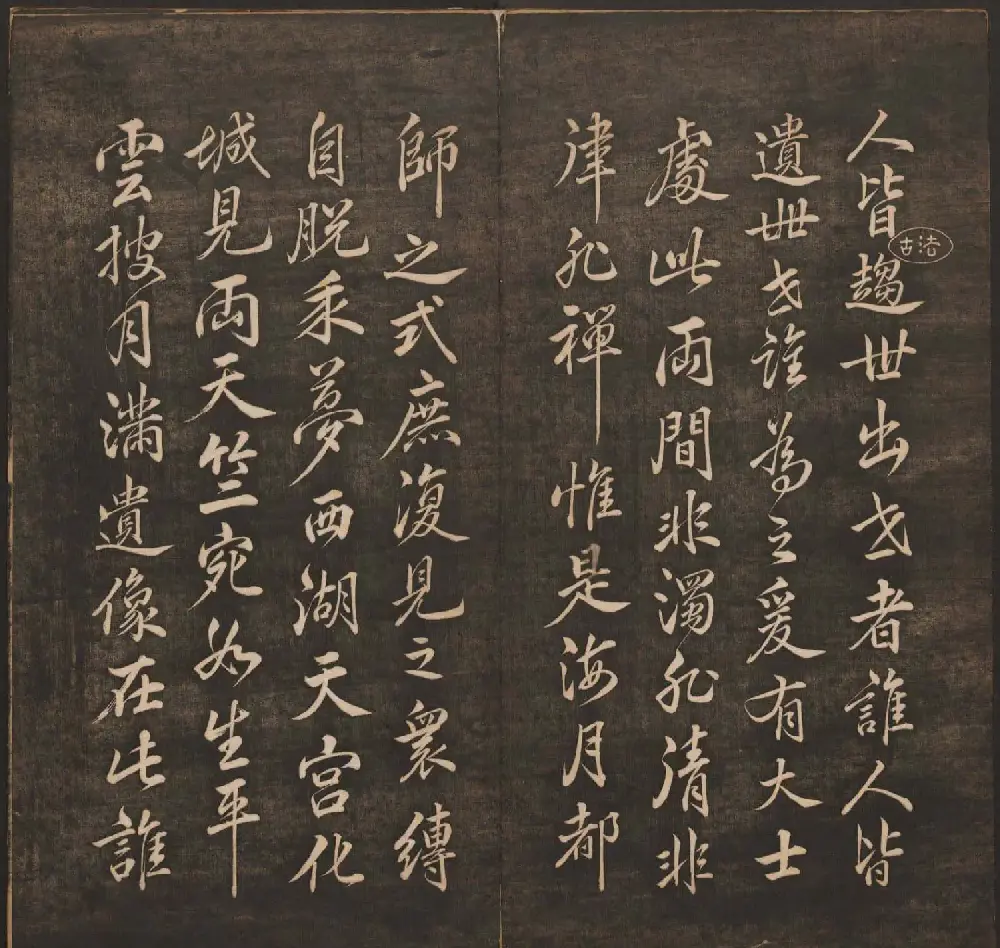 人皆趨世出世者誰人皆
法古
遺世世誰為之爰有大士
處此兩間非濁非清非
律非禪惟是海月都
師之式庶復見之眾縛
自脫我夢西湖天宮化
城見兩天竺宛如生平
雲披月滿遺像在此誰